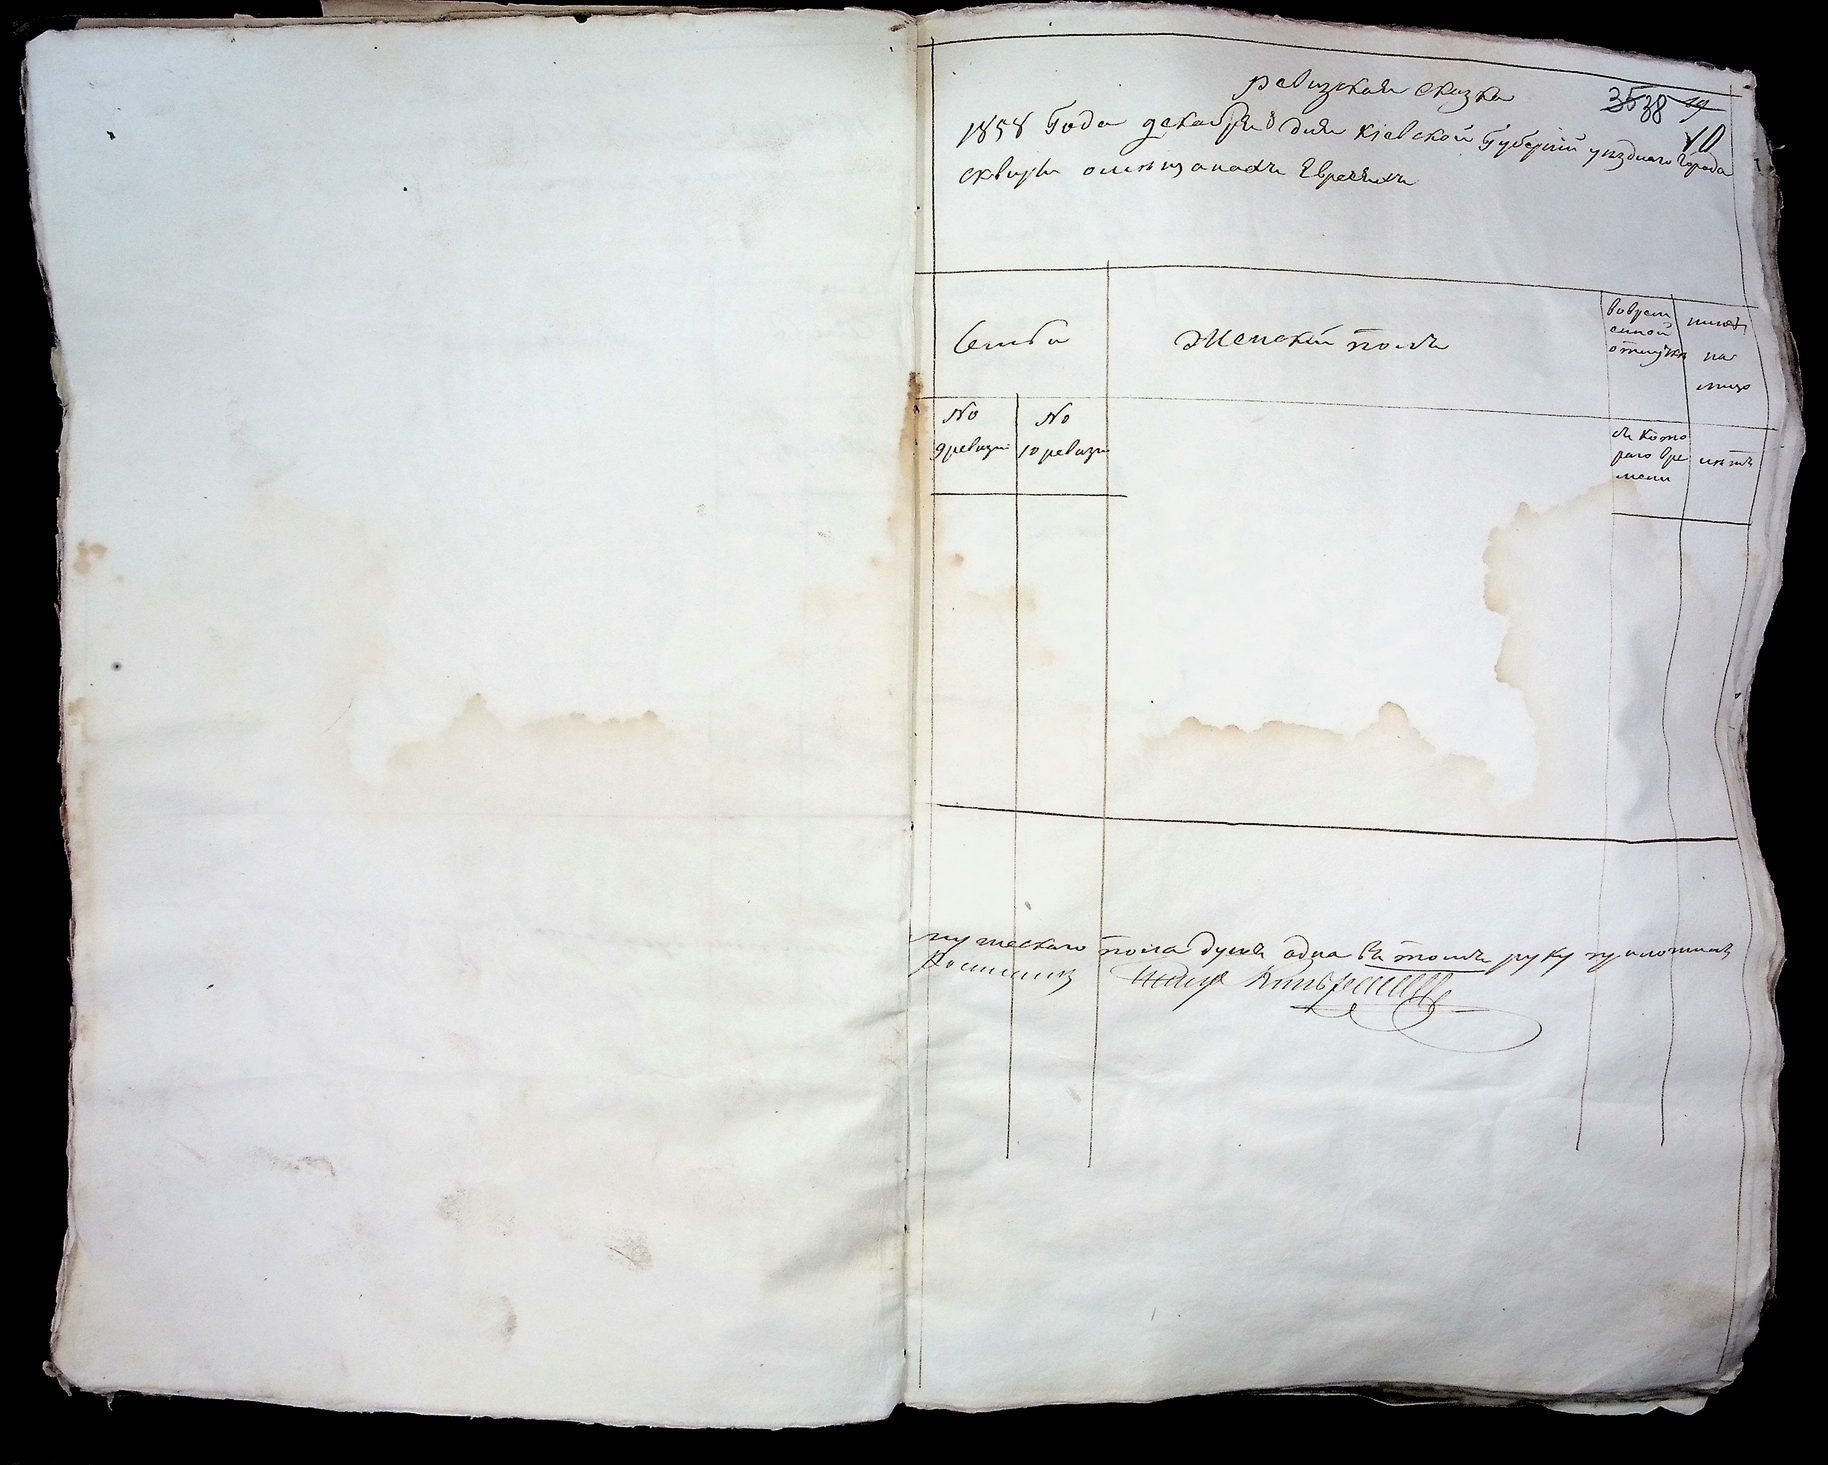 ревизская сказка
3538 19
10
1858 Года декабря 8 дня Кіевской Губерніи уѣзднаго города
Сквиры о мѣщанахъ Евреяхъ
Семьи
Женскій полъ
вовреме
нной
отлучки
ныне
на
лицо
No
9 ревизи
No
10 ревизи
съ кото
раго вре
мени
лѣтъ
мужескаго пола душъ одна въ томъ руку приложилъ